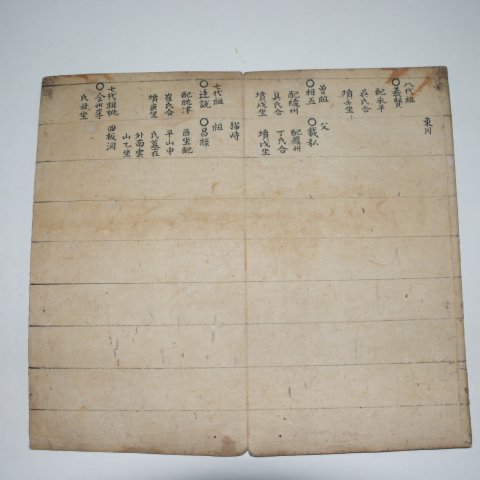 八代祖
○義賢
配永平
呂氏合
墳壬坐
曾祖
○相五
配綾州
具氏合
墳戌坐
七代祖
○達說
配號津
崔氏合
墳庚坐
七代祖妣
全州李
氏丑坐
東川
父
○載弘
配羅州
丁氏合
墳戌坐
猫峙
祖
○昌祿
酉坐配
平山申
氏墓在
外南雲
山乙坐
四板洞